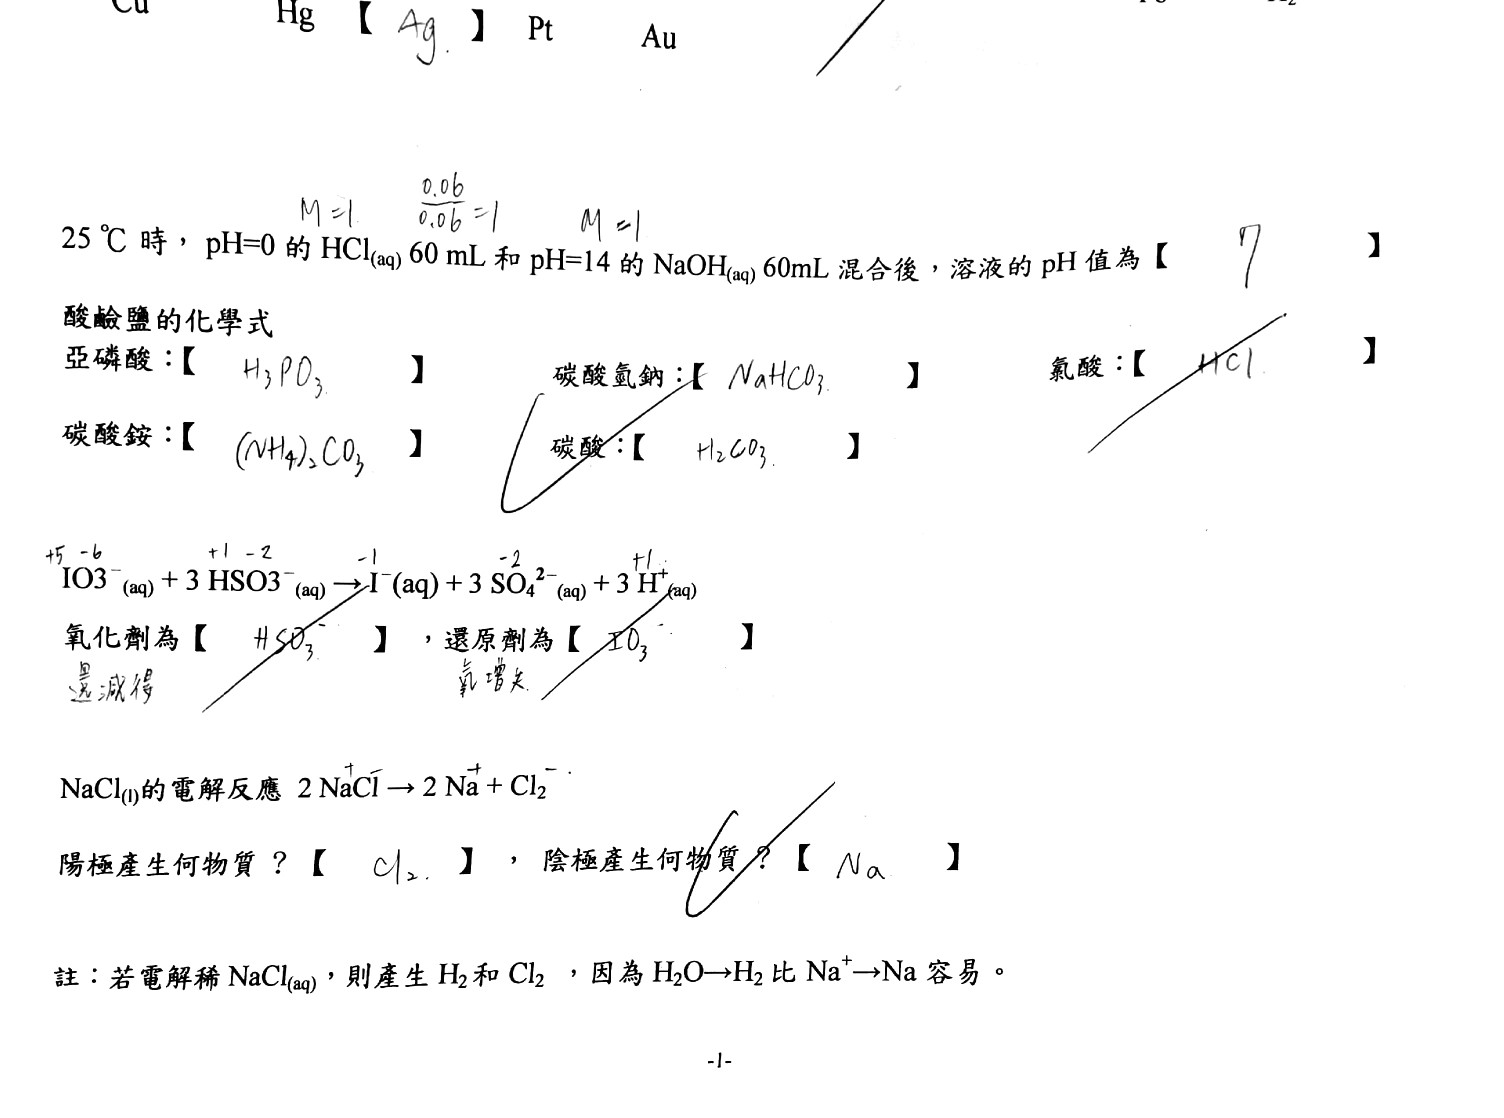 Cu Hg 【 Ag. 】 Pt Au
M=1 0.06/0.06=1 M=1
25 ℃ 時，pH=0 的 HCl(aq) 60 mL 和 pH=14 的 NaOH(aq) 60mL 混合後，溶液的 pH 值為【 7 】
酸鹼鹽的化學式
亞磷酸：【 H₃PO₃. 】 碳酸氫鈉：【 NaHCO₃. 】 氯酸：【 HCl. 】
碳酸銨：【 (NH₄)₂CO₃ 】 碳酸：【 H₂CO₃. 】
+5 -6 +1 -2 -1 -2 +1
IO3⁻(aq) + 3 HSO3⁻(aq) → I⁻(aq) + 3 SO₄²⁻(aq) + 3 H⁺(aq)
氧化劑為【 HSO₃⁻ 】，還原劑為【 IO₃⁻ 】
還減得 氧增失
+ - + -
NaCl(l)的電解反應 2 NaCl → 2 Na + Cl₂
陽極產生何物質？【 Cl₂. 】，陰極產生何物質？【 Na 】
註：若電解稀 NaCl(aq)，則產生 H₂和 Cl₂ ，因為 H₂O→H₂ 比 Na⁺→Na 容易。
-1-